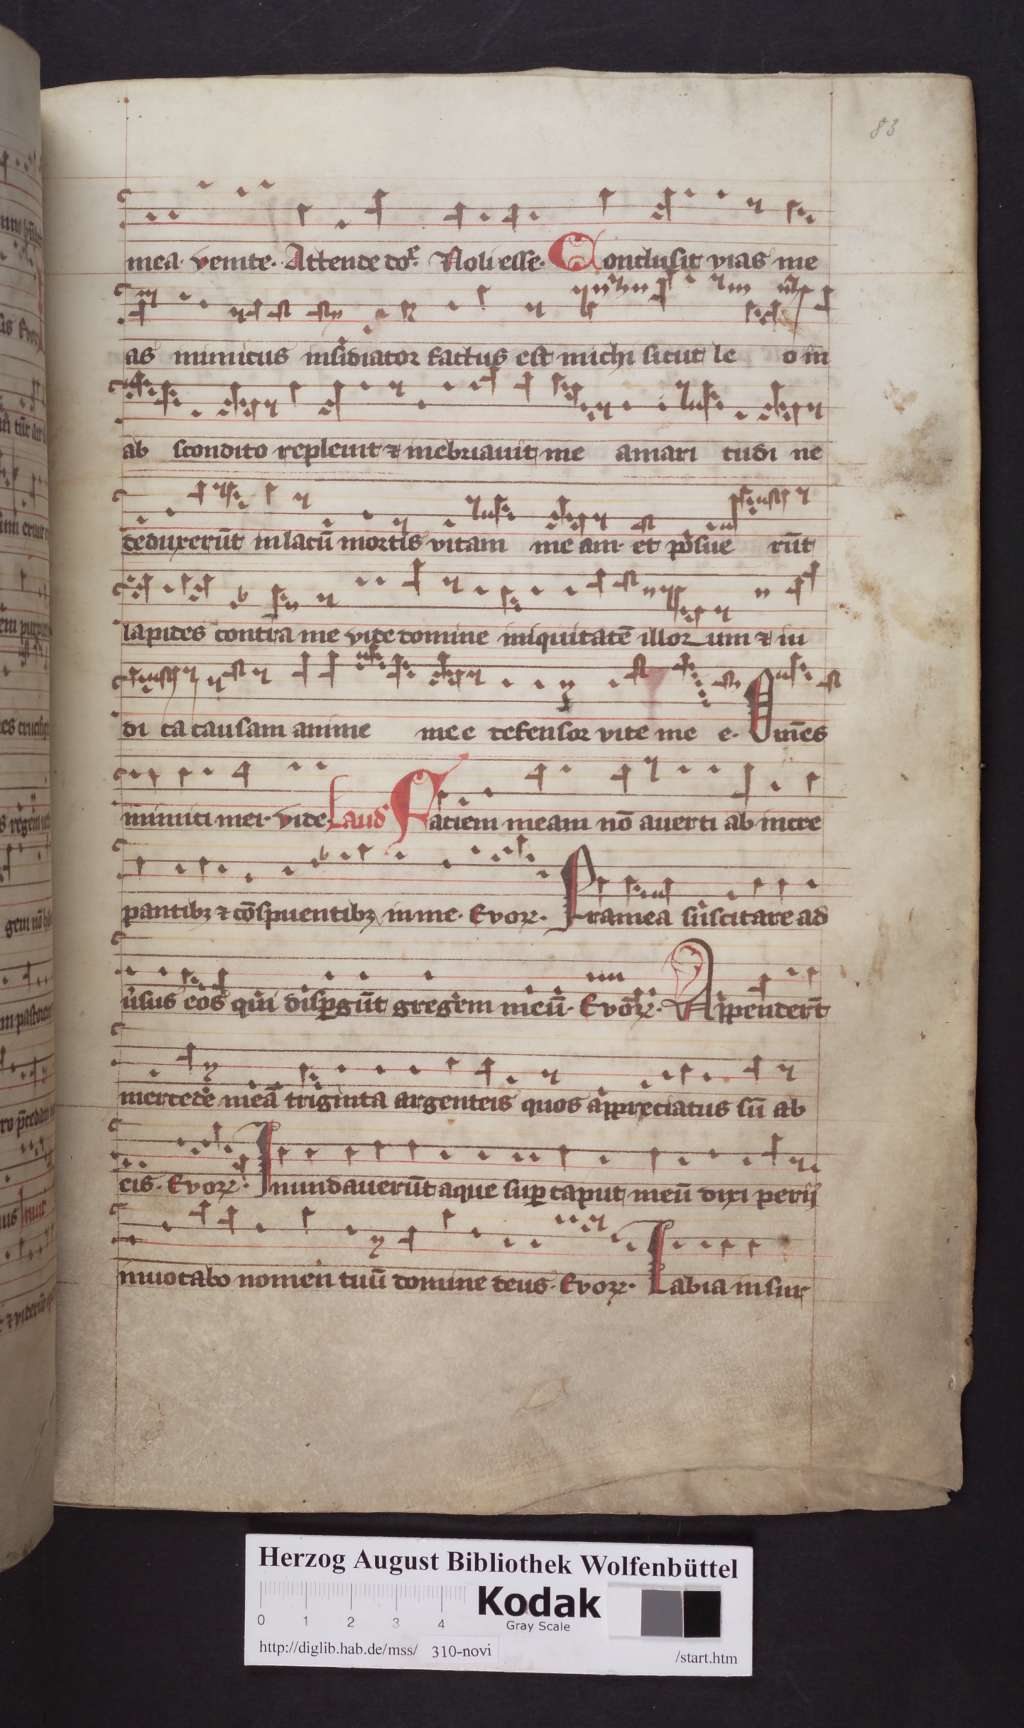 83
mea. venite. Attende do. Noli esse. Conclusit vias me
as inimicus insidiator factus est michi sicut le o in
ab scondito repleuit ⁊ inebriauit me amari tudi ne
deduxerūt in lacū mortis vitam me am et posue rūt
lapides contra me vide domine iniquitatē illor um ⁊ iu
di ca causam anime me e defensor vite me e. Omēs
inimici mei. vide Laud Faciem meam nō auerti ab incre
pantibꝫ ⁊ cōspuentibꝫ in me. Evoꝝ. Framea suscitare ad
uersus eos qui dispergūt gregem meū. Evoꝝ. Appenderūt
mercedē meā triginta argenteis quos appreciatus sū ab
eis. Evoꝝ. Inundauerūt aque sup caput meū dixi perii
inuocabo nomen tuū domine deus. Evoꝝ. Labia insur
Herzog August Bibliothek Wolfenbüttel
0 1 2 3 4
Kodak
Gray Scale
http://diglib.hab.de/mss/ 310-novi /start.htm